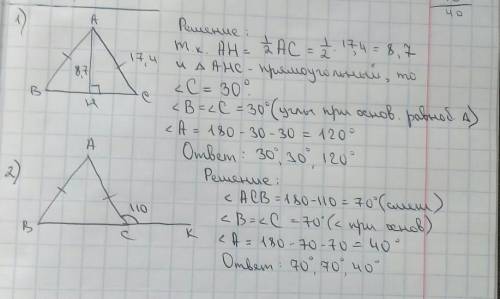 1)
A
17,4
8,7
B
H
C
Решение:
т.к. AH = 1/2 AC = 1/2 · 17,4 = 8,7
и △ AHC - прямоугольный, то
∠C = 30°.
∠B = ∠C = 30° (углы при основ. равноб △)
∠A = 180 - 30 - 30 = 120°
Ответ: 30°, 30°, 120°
2)
A
110
B
C
K
Решение:
∠ACB = 180 - 110 = 70° (смеж)
∠B = ∠C = 70° (∠ при основ)
∠A = 180 - 70 - 70 = 40°
Ответ: 70°, 70°, 40°
40